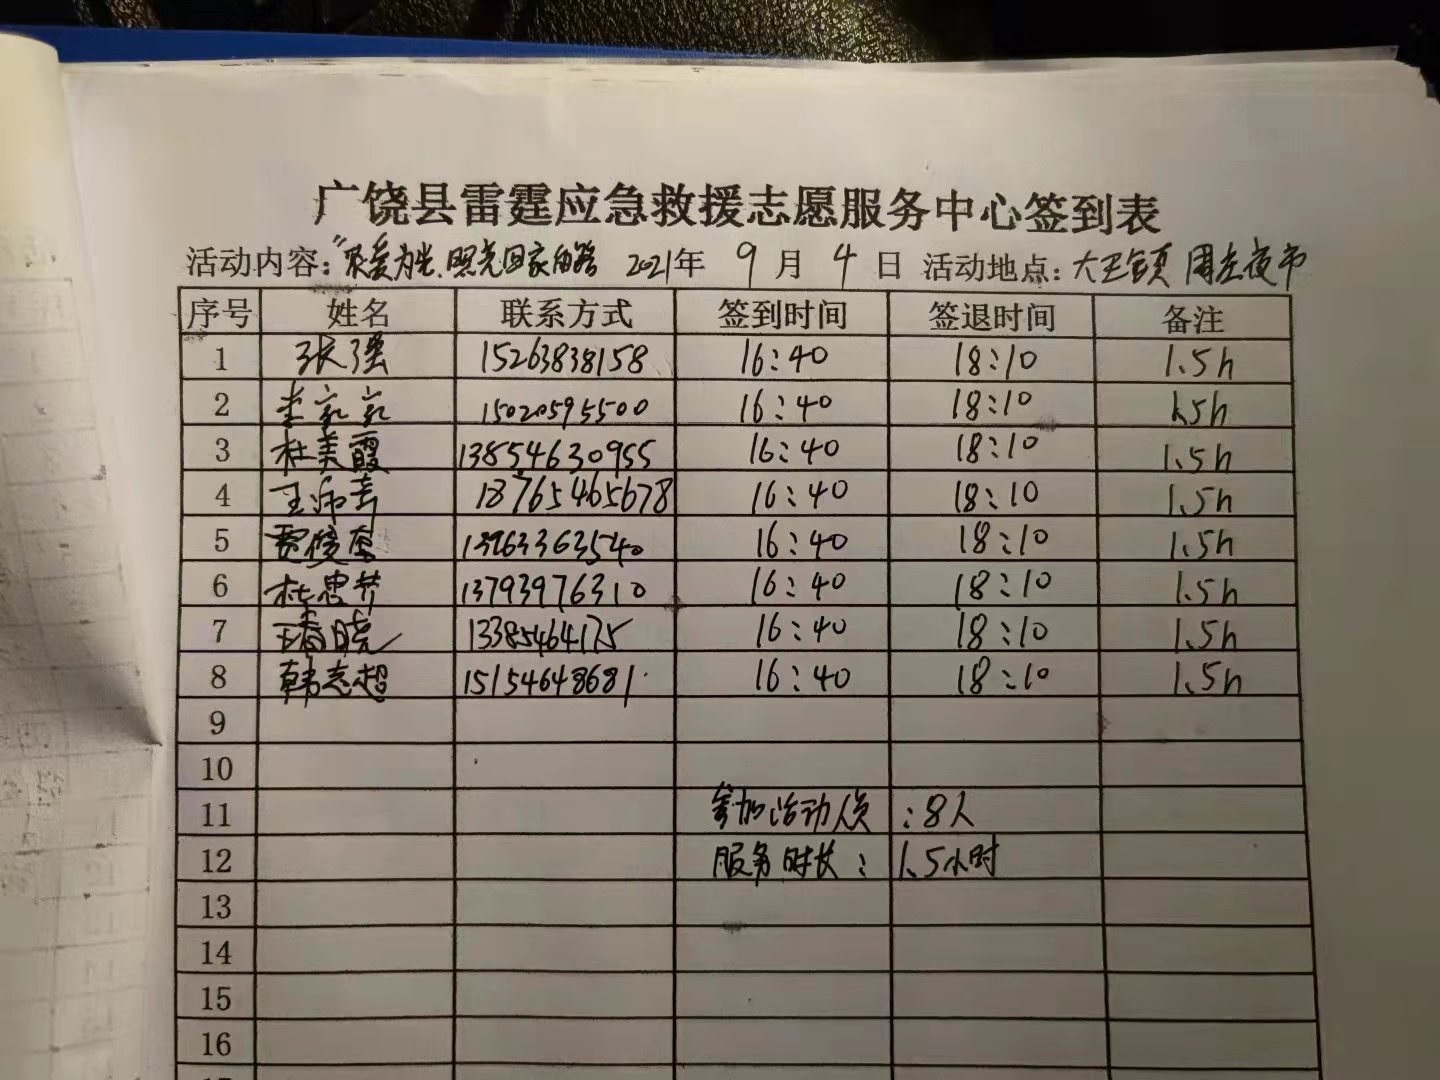 广饶县雷霆应急救援志愿服务中心签到表
活动内容：“聚爱为光、照亮回家的路 2021年 9 月 4 日 活动地点：大王镇 周庄夜市
序号 姓名 联系方式 签到时间 签退时间 备注
1 张强 15263838158 16:40 18:10 1.5h
2 李家家 15020595500 16:40 18:10 1.5h
3 杜美霞 13854630955 16:40 18:10 1.5h
4 18765465678 16:40 18:10 1.5h
5 13963363540 16:40 18:10 1.5h
6 杜忠芹 13793976310 16:40 18:10 1.5h
7 13385464175 16:40 18:10 1.5h
8 韩志超 15154648681 16:40 18:10 1.5h
9
10
11 参加活动人员 ：8人
12 服务时长： 1.5小时
13
14
15
16